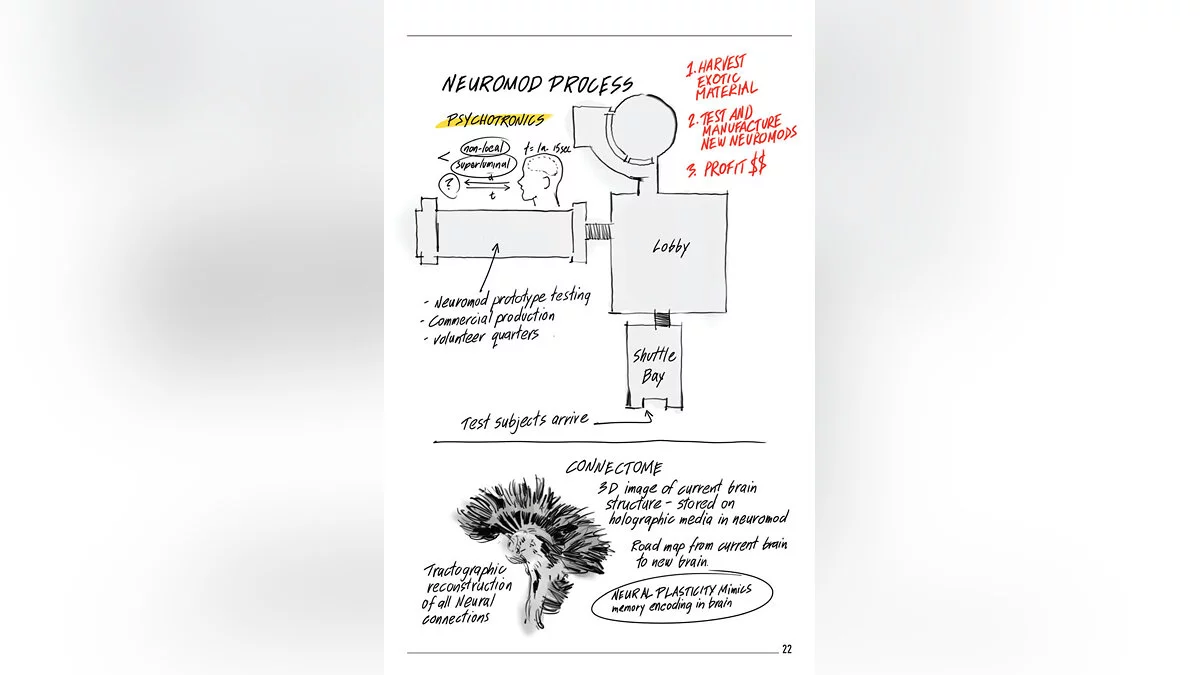 NEUROMOD PROCESS
PSYCHOTRONICS
< non-local
superluminal
?
d
t
t = 1 in 15sec
1. HARVEST
EXOTIC
MATERIAL
2. TEST AND
MANUFACTURE
NEW NEUROMODS
3. PROFIT $$
Lobby
- Neuromod prototype testing
- Commercial production
- volunteer quarters
Shuttle
Bay
Test subjects arrive
CONNECTOME
3D image of current brain
structure - stored on
holographic media in neuromod
Road map from current brain
to new brain.
Tractographic
reconstruction
of all Neural
connections
NEURAL PLASTICITY Mimics
memory encoding in brain
22